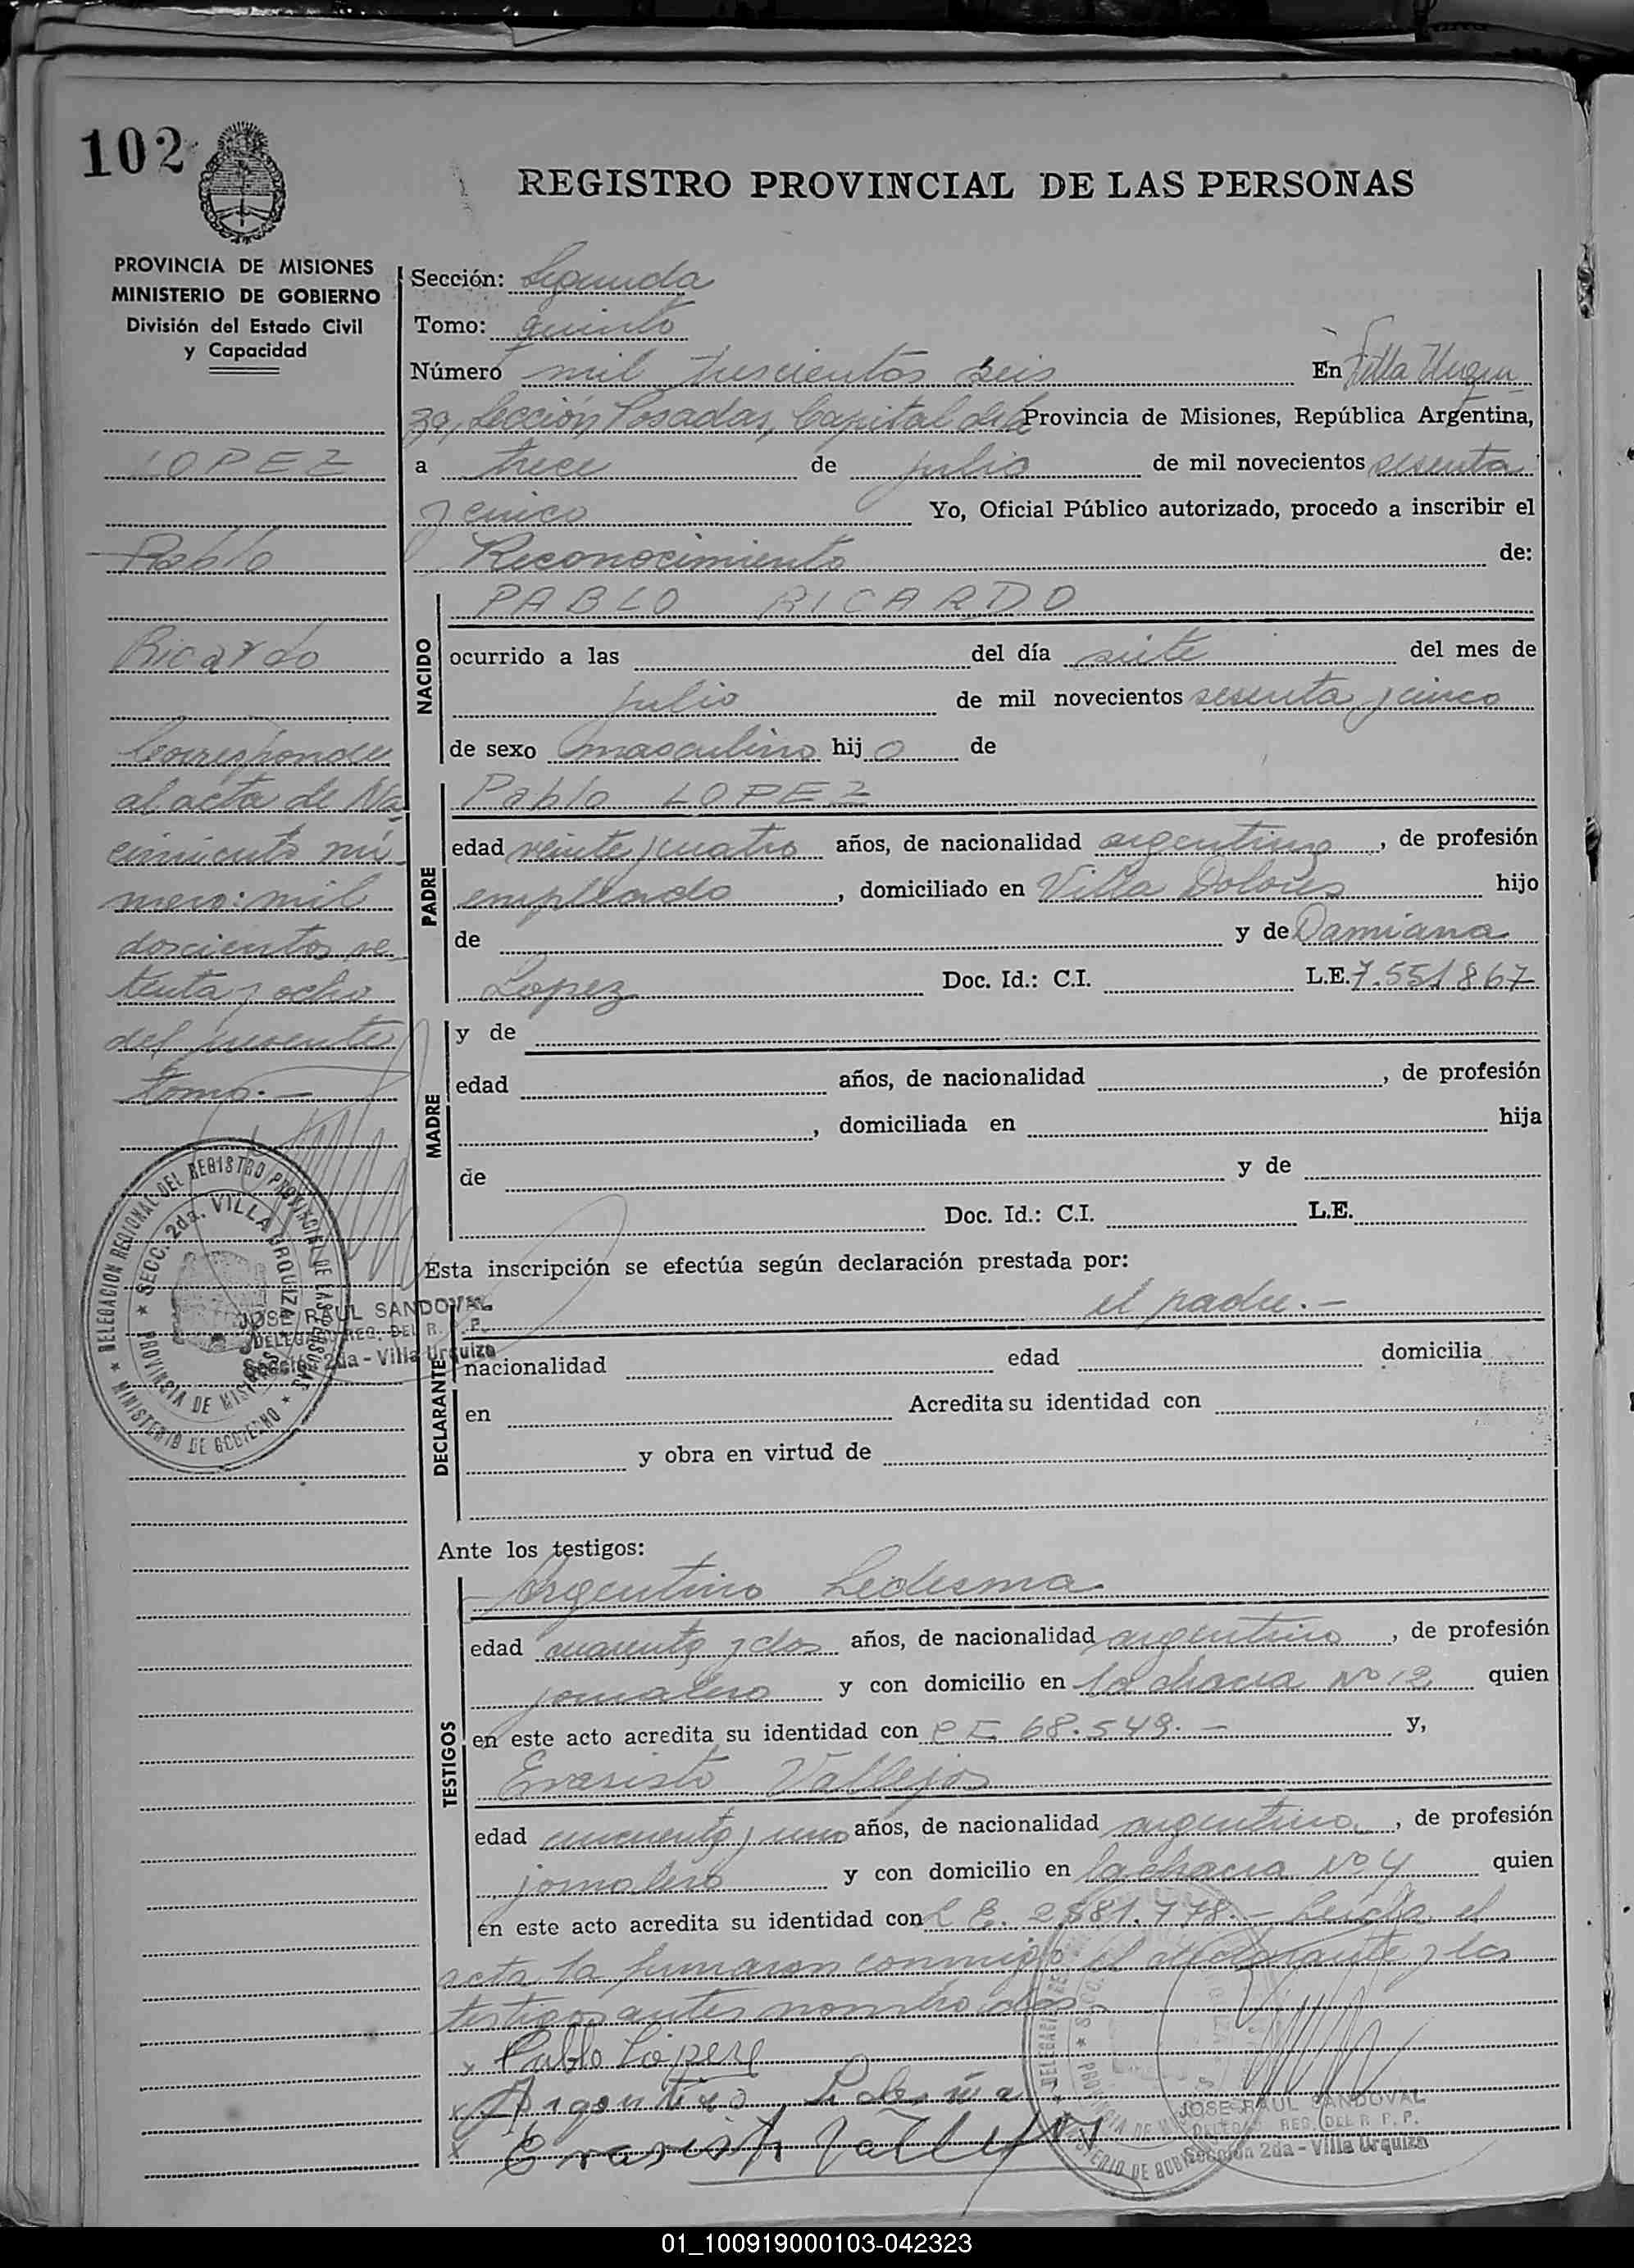 102
REGISTRO PROVINCIAL DE LAS PERSONAS
PROVINCIA DE MISIONES
MINISTERIO DE GOBIERNO
División del Estado Civil
y Capacidad
LOPEZ
Pablo
Ricardo
Corresponde
al acta de Na
cimiento nú
mero: mil
doscientos se
tenta y ocho
del presente
tomo.-
Sección: Segunda
Tomo: quinto
Número mil trescientos seis En Villa Urqui
za, Sección Posadas, Capital de la Provincia de Misiones, República Argentina,
a trece de julio de mil novecientos sesenta
y cinco Yo, Oficial Público autorizado, procedo a inscribir el
Reconocimiento de:
NACIDO
PABLO RICARDO
ocurrido a las del día siete del mes de
julio de mil novecientos sesenta y cinco
de sexo masculino hijo de
PADRE
Pablo LOPEZ
edad veinte y cuatro años, de nacionalidad argentino, de profesión
empleado, domiciliado en Villa Dolores hijo
de y de Damiana
Lopez Doc. Id.: C.I. L.E. 7.551867
MADRE
y de
edad años, de nacionalidad , de profesión
, domiciliada en hija
de y de
Doc. Id.: C.I. L.E.
Esta inscripción se efectúa según declaración prestada por:
el padre.-
DECLARANTE
nacionalidad edad domicilia
en Acredita su identidad con
y obra en virtud de
DELEGACION REGIONAL DEL REGISTRO PROVINCIAL DE LAS PERSONAS
SECC. 2da. VILLA URQUIZA
PROVINCIA DE MISIONES
MINISTERIO DE GOBIERNO
JOSE RAUL SANDOVAL
DELEGADO REG. DEL R. P. P.
Sección 2da - Villa Urquiza
Ante los testigos:
TESTIGOS
Argentino Ledesma
edad cuarenta y dos años, de nacionalidad argentino, de profesión
jornalero y con domicilio en la chacra Nº 12 quien
en este acto acredita su identidad con 68.549.- y,
Evaristo Vallejos
edad cincuenta y uno años, de nacionalidad argentino, de profesión
jornalero y con domicilio en la chacra Nº 4 quien
en este acto acredita su identidad con L E. 2.581.778.- Leída el
acta la firmaron conmigo el declarante y los
testigos antes nombrados.
x Pablo López
x Argentino Ledesma
x Evaristo Vallejos
JOSE RAUL SANDOVAL
DELEGADO REG. DEL R. P. P.
Sección 2da - Villa Urquiza
01_100919000103-042323